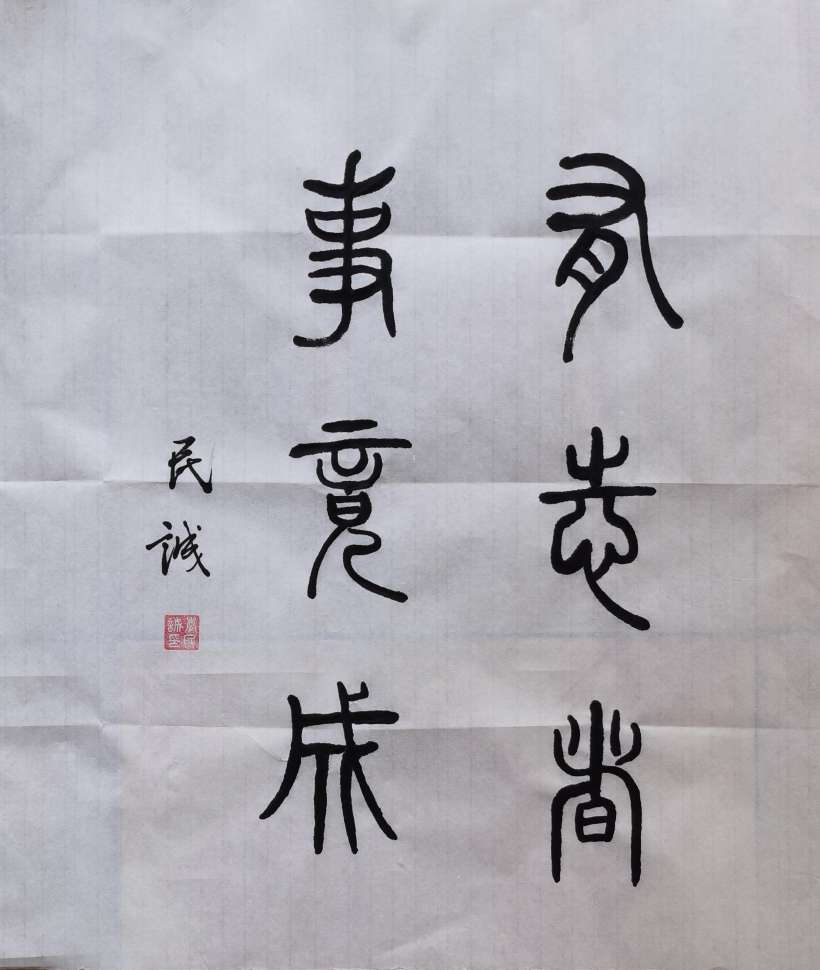 有志者
事竟成
民誠